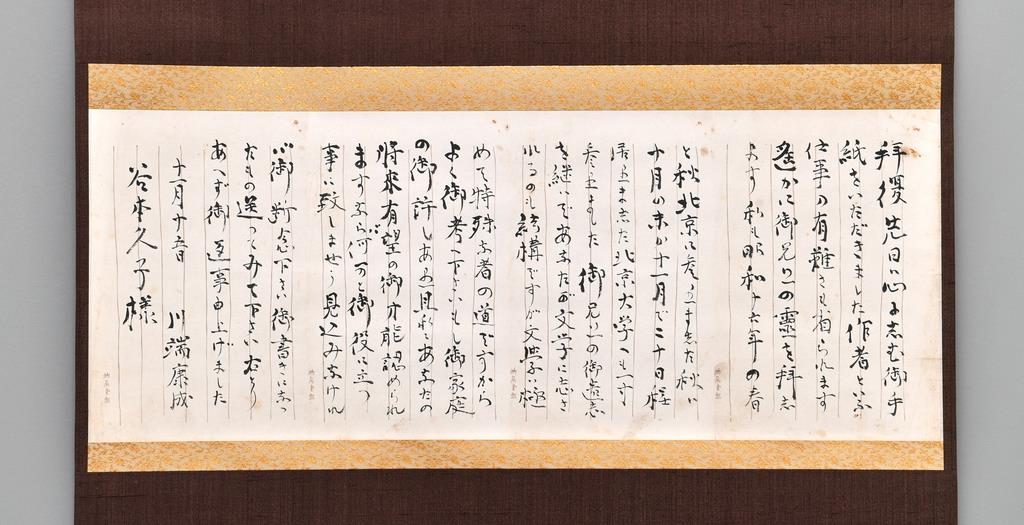 拝復 先日は心よ志む御手
紙をいただきました作者といふ
仕事の有難さも知られます
遙かに御兄上の霊を拝志
ます 私も昭和十六年の春
と秋北京に参りました 秋は
十月の末か十一月で二十日程
居りました 北京大学へも一寸
参りました 御兄上の御遺志
を継いであなたが文学に志さ
れるのも結構ですが文学は極
めて特殊な者の道ですから
よく御考へ下さいもし御家庭
の御許しあり一見私にあなたの
将来有望の御才能認められ
ますならば何かと御役に立つ
事に致しませう 見込みなけれ
ば御断念下さい御書きになつ
たもの送つてみて下さい 右とり
あへず御返事申上げました
十一月十五日 川端康成
谷本久子様